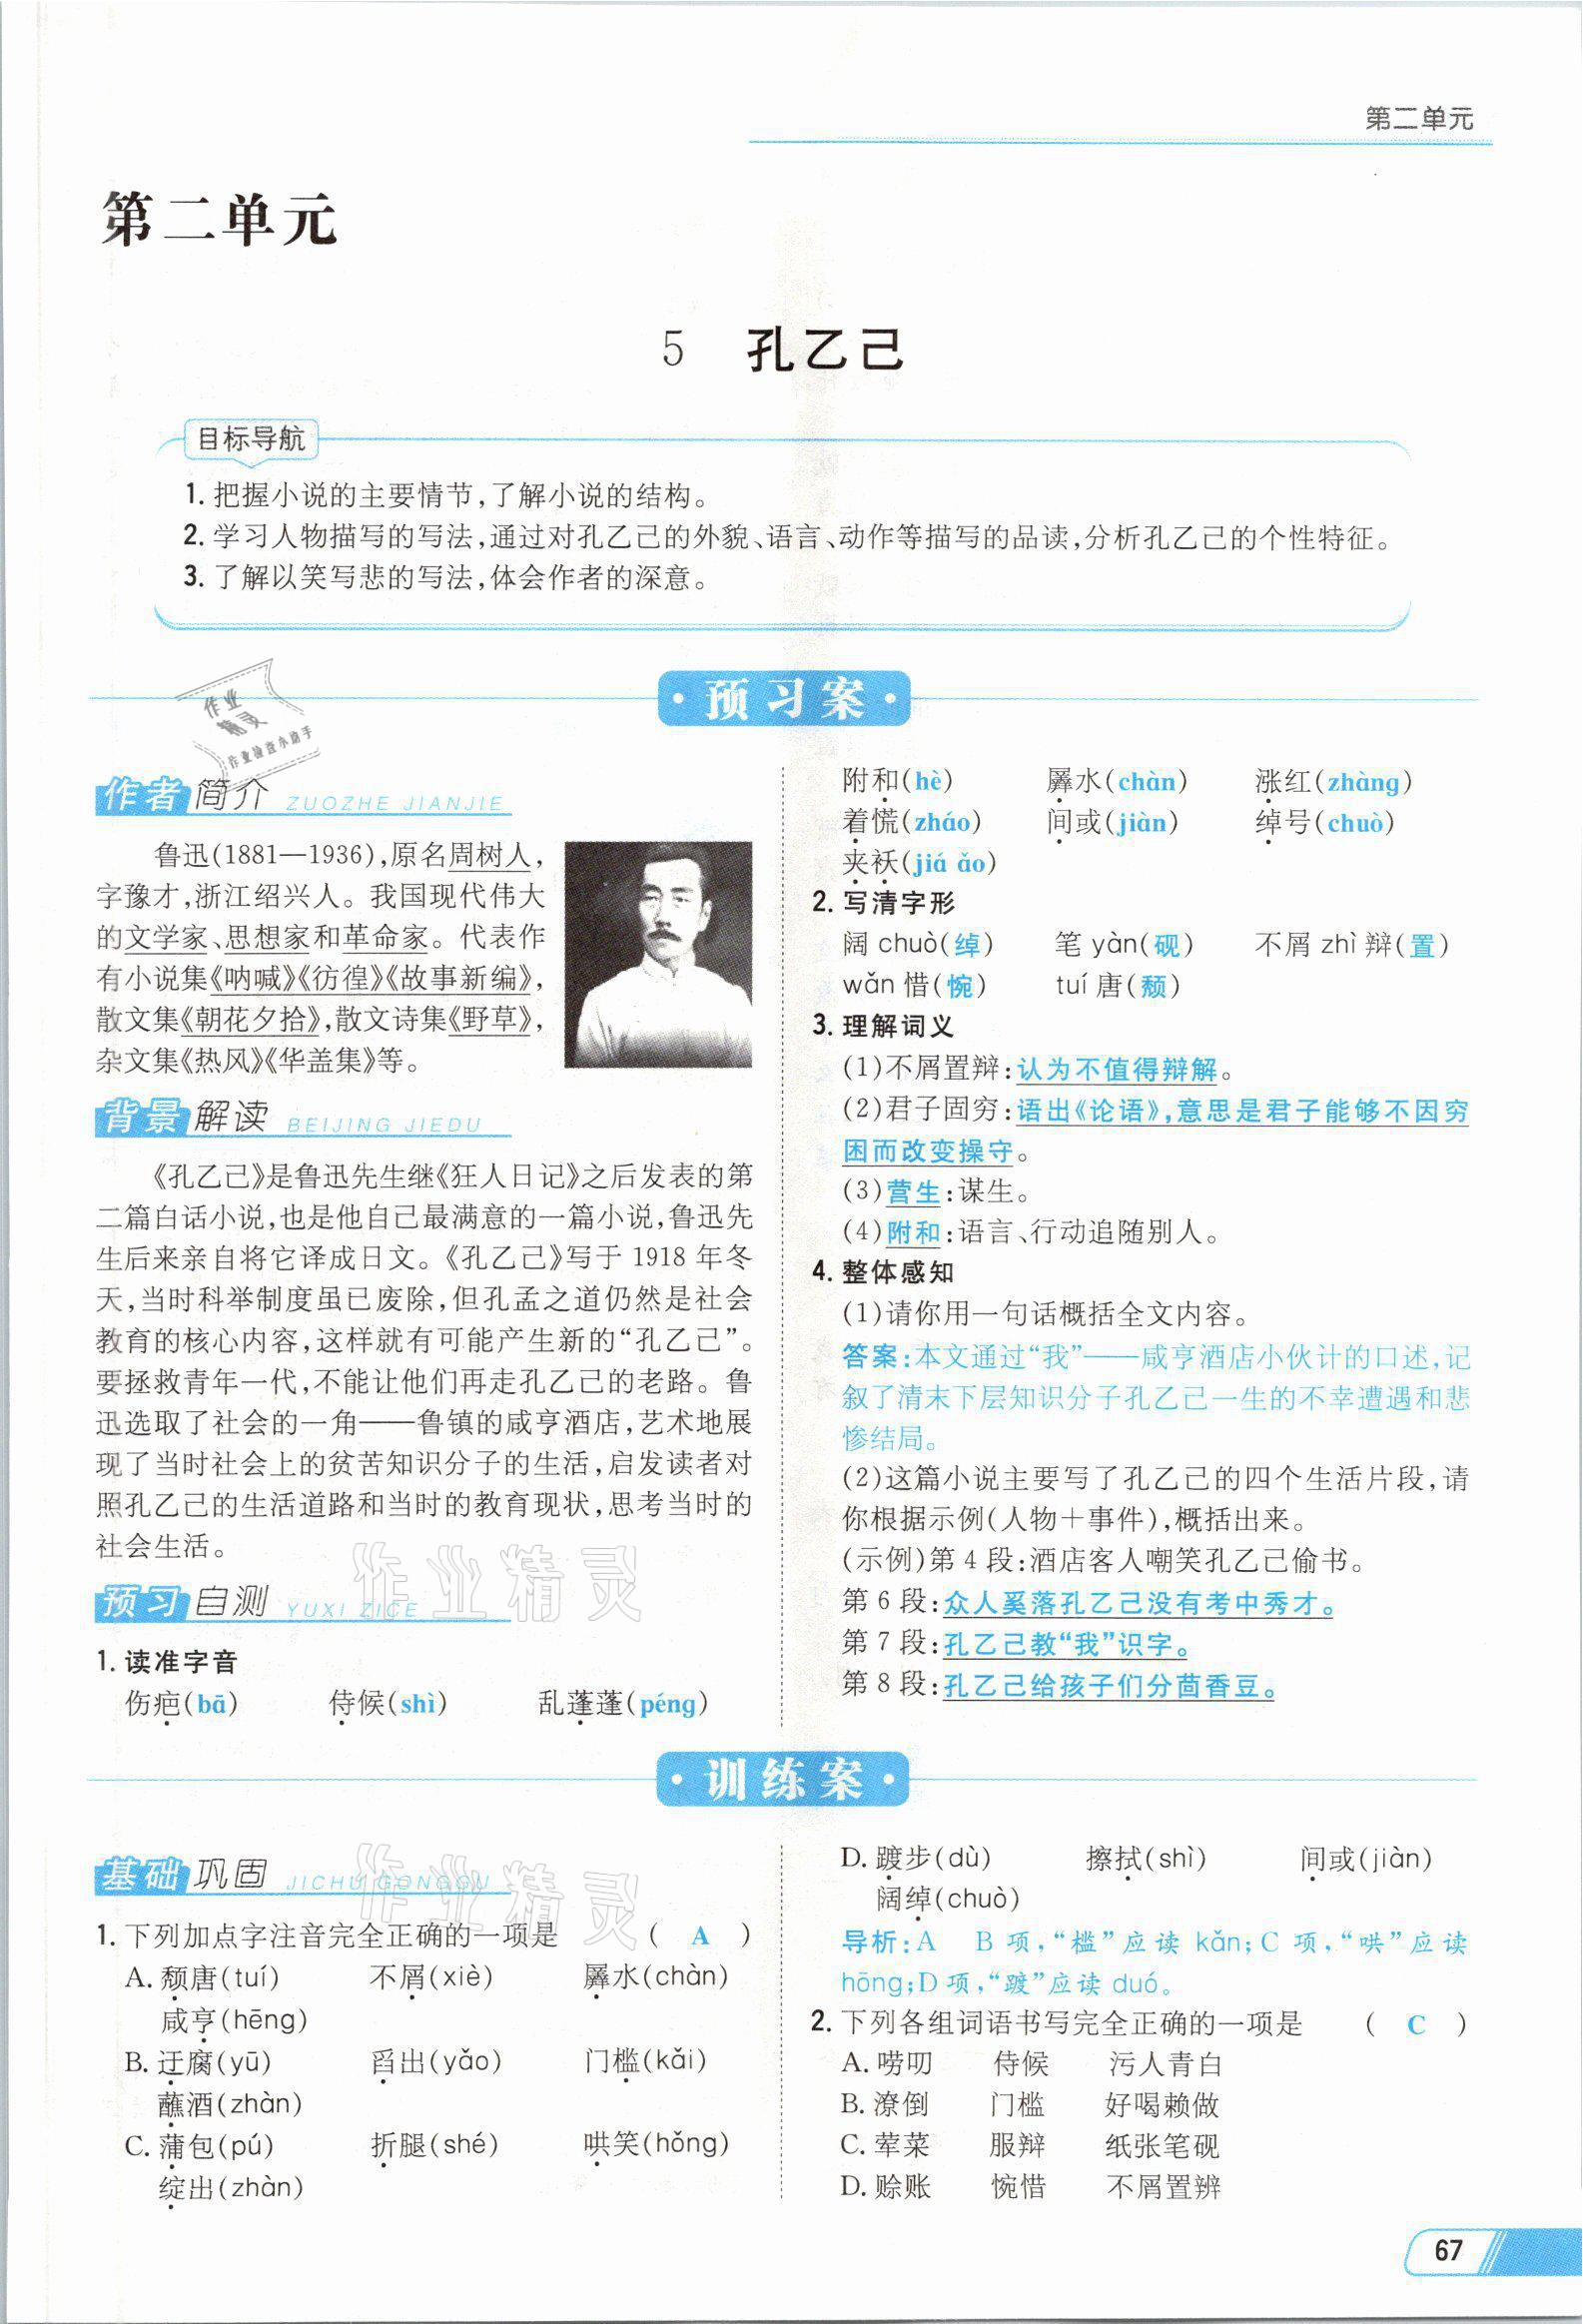 第二单元
第二单元
5 孔乙己
目标导航
1. 把握小说的主要情节,了解小说的结构。
2. 学习人物描写的写法,通过对孔乙己的外貌、语言、动作等描写的品读,分析孔乙己的个性特征。
3. 了解以笑写悲的写法,体会作者的深意。
·预习案·
作业
精灵
作业检查小助手
作者简介 ZUOZHE JIANJIE
鲁迅(1881—1936),原名周树人,
字豫才,浙江绍兴人。我国现代伟大
的文学家、思想家和革命家。代表作
有小说集《呐喊》《彷徨》《故事新编》,
散文集《朝花夕拾》,散文诗集《野草》,
杂文集《热风》《华盖集》等。
背景解读 BEIJING JIEDU
《孔乙己》是鲁迅先生继《狂人日记》之后发表的第
二篇白话小说,也是他自己最满意的一篇小说,鲁迅先
生后来亲自将它译成日文。《孔乙己》写于 1918 年冬
天,当时科举制度虽已废除,但孔孟之道仍然是社会
教育的核心内容,这样就有可能产生新的“孔乙己”。
要拯救青年一代,不能让他们再走孔乙己的老路。鲁
迅选取了社会的一角——鲁镇的咸亨酒店,艺术地展
现了当时社会上的贫苦知识分子的生活,启发读者对
照孔乙己的生活道路和当时的教育现状,思考当时的
社会生活。
作业精灵
预习自测 YUXI ZICE
1. 读准字音
伤疤(bā) 侍候(shì) 乱蓬蓬(péng)
附和(hè) 羼水(chàn) 涨红(zhàng)
着慌(zháo) 间或(jiàn) 绰号(chuò)
夹袄(jiá ǎo)
2. 写清字形
阔 chuò(绰) 笔 yàn(砚) 不屑 zhì 辩(置)
wǎn 惜(惋) tuí 唐(颓)
3. 理解词义
(1)不屑置辩:认为不值得辩解。
(2)君子固穷:语出《论语》,意思是君子能够不因穷
困而改变操守。
(3)营生:谋生。
(4)附和:语言、行动追随别人。
4. 整体感知
(1)请你用一句话概括全文内容。
答案:本文通过“我”——咸亨酒店小伙计的口述,记
叙了清末下层知识分子孔乙己一生的不幸遭遇和悲
惨结局。
(2)这篇小说主要写了孔乙己的四个生活片段,请
你根据示例(人物+事件),概括出来。
(示例)第 4 段:酒店客人嘲笑孔乙己偷书。
第 6 段:众人奚落孔乙己没有考中秀才。
第 7 段:孔乙己教“我”识字。
第 8 段:孔乙己给孩子们分茴香豆。
·训练案·
基础巩固 JICHU GONGGU
作业精灵
1. 下列加点字注音完全正确的一项是 ( A )
A. 颓唐(tuí) 不屑(xiè) 羼水(chàn)
咸亨(hēng)
B. 迂腐(yū) 舀出(yǎo) 门槛(kǎi)
蘸酒(zhàn)
C. 蒲包(pú) 折腿(shé) 哄笑(hǒng)
绽出(zhàn)
D. 踱步(dù) 擦拭(shì) 间或(jiàn)
阔绰(chuò)
导析:A B 项,“槛”应读 kǎn;C 项,“哄”应读
hōng;D 项,“踱”应读 duó。
2. 下列各组词语书写完全正确的一项是 ( C )
A. 唠叨 侍候 污人青白
B. 潦倒 门槛 好喝赖做
C. 荤菜 服辩 纸张笔砚
D. 赊账 惋惜 不屑置辨
67